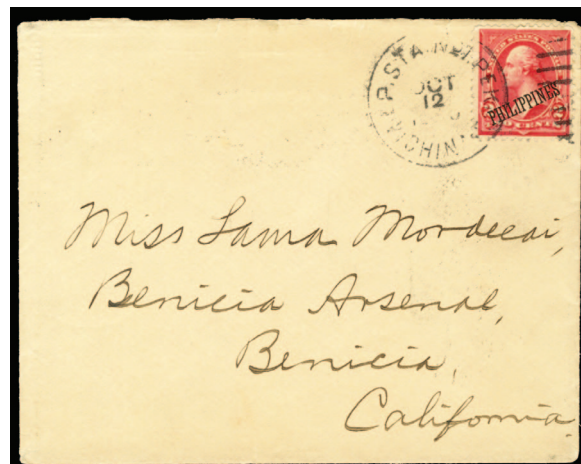 MIL. P. STA. No 1. P. I.
CHINA
OCT
12
PHILIPPINES
Miss Laura Mordecai,
Benicia Arsenal,
Benicia,
California.